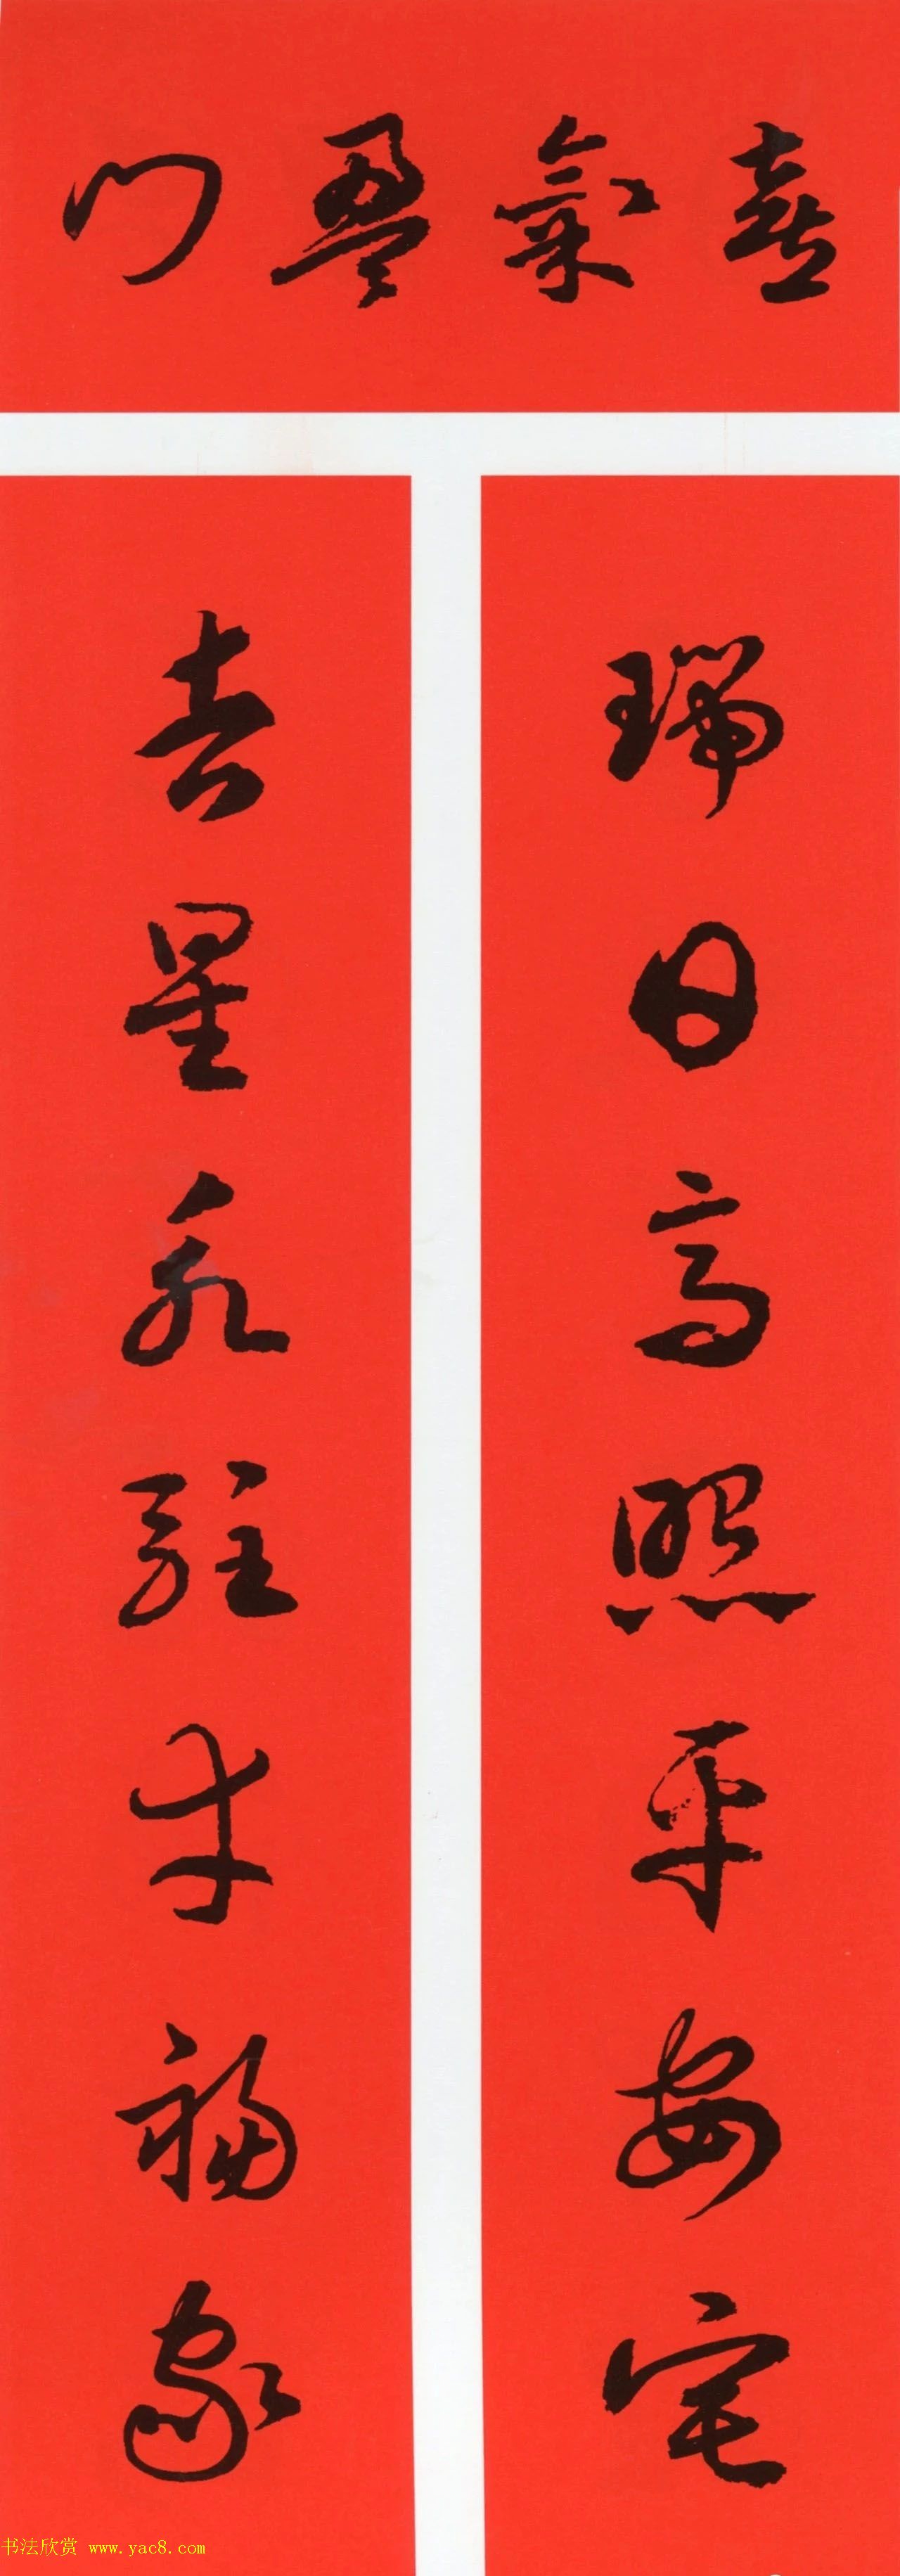 喜氣盈門
瑞日高照平安宅
吉星永駐幸福家
书法欣赏 www.yac8.com